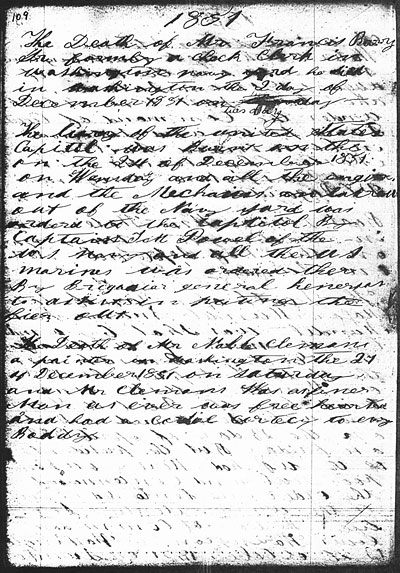 109
1851
The Death of Mr Francis Barry
formly a Clock Clerk in
Washington navy yard he died
in Washington the 2 day of
December 1851 on tuesday
The libary of the united States
Capitol was burnt on the
on the 24 of December 1851
on Wensday and all the engines
and the Mechanics
out of the Navy yard was
ordered to the Capitol By
Captain Powel of the
U S Navy and all the U S
marines was ordered there
By Brigadier general henerson
to assist in puting the
fier out
The Death of Mr Noble Clemons
a painter in Washington the 27
of December 1851 on Saturday
and Mr Clemons Was as finer
Man as ever was free hearted
and had a to evry
Boddy